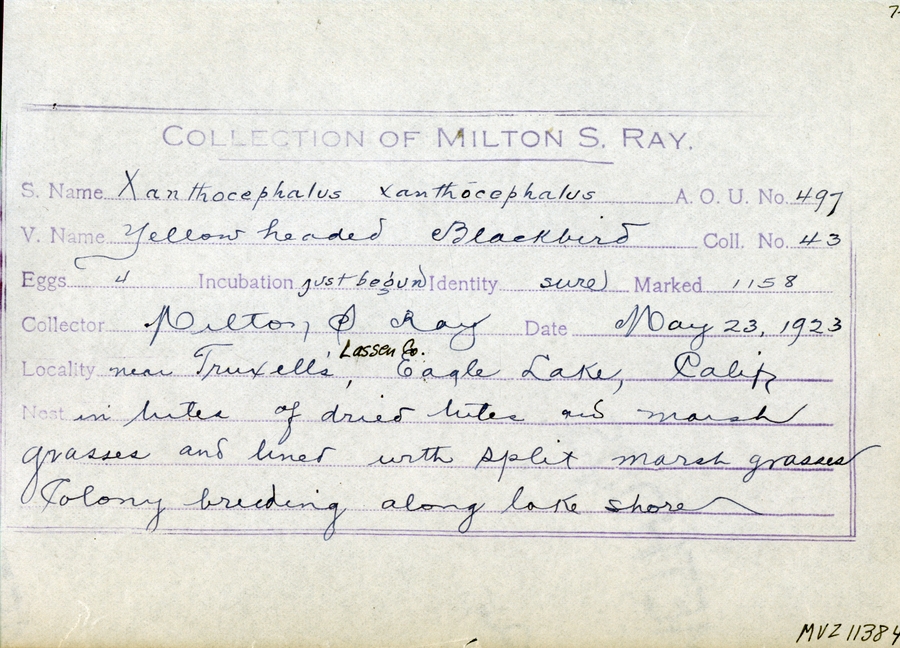 7
COLLECTION OF MILTON S. RAY.
S. Name Xanthocephalus xanthocephalus A. O. U. No. 497
V. Name Yellow headed Blackbird Coll. No. 43
Eggs 4 Incubation just begun Identity sure Marked 1158
Collector Milton S Ray Date May 23, 1923
Lassen Co.
Locality near Truxell's, Eagle Lake, Calif
Nest in tules of dried tules and marsh
grasses and lined with split marsh grasses
Colony breeding along lake shore
MVZ 11384